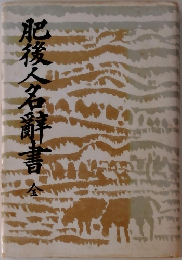 肥後人名辭書
全